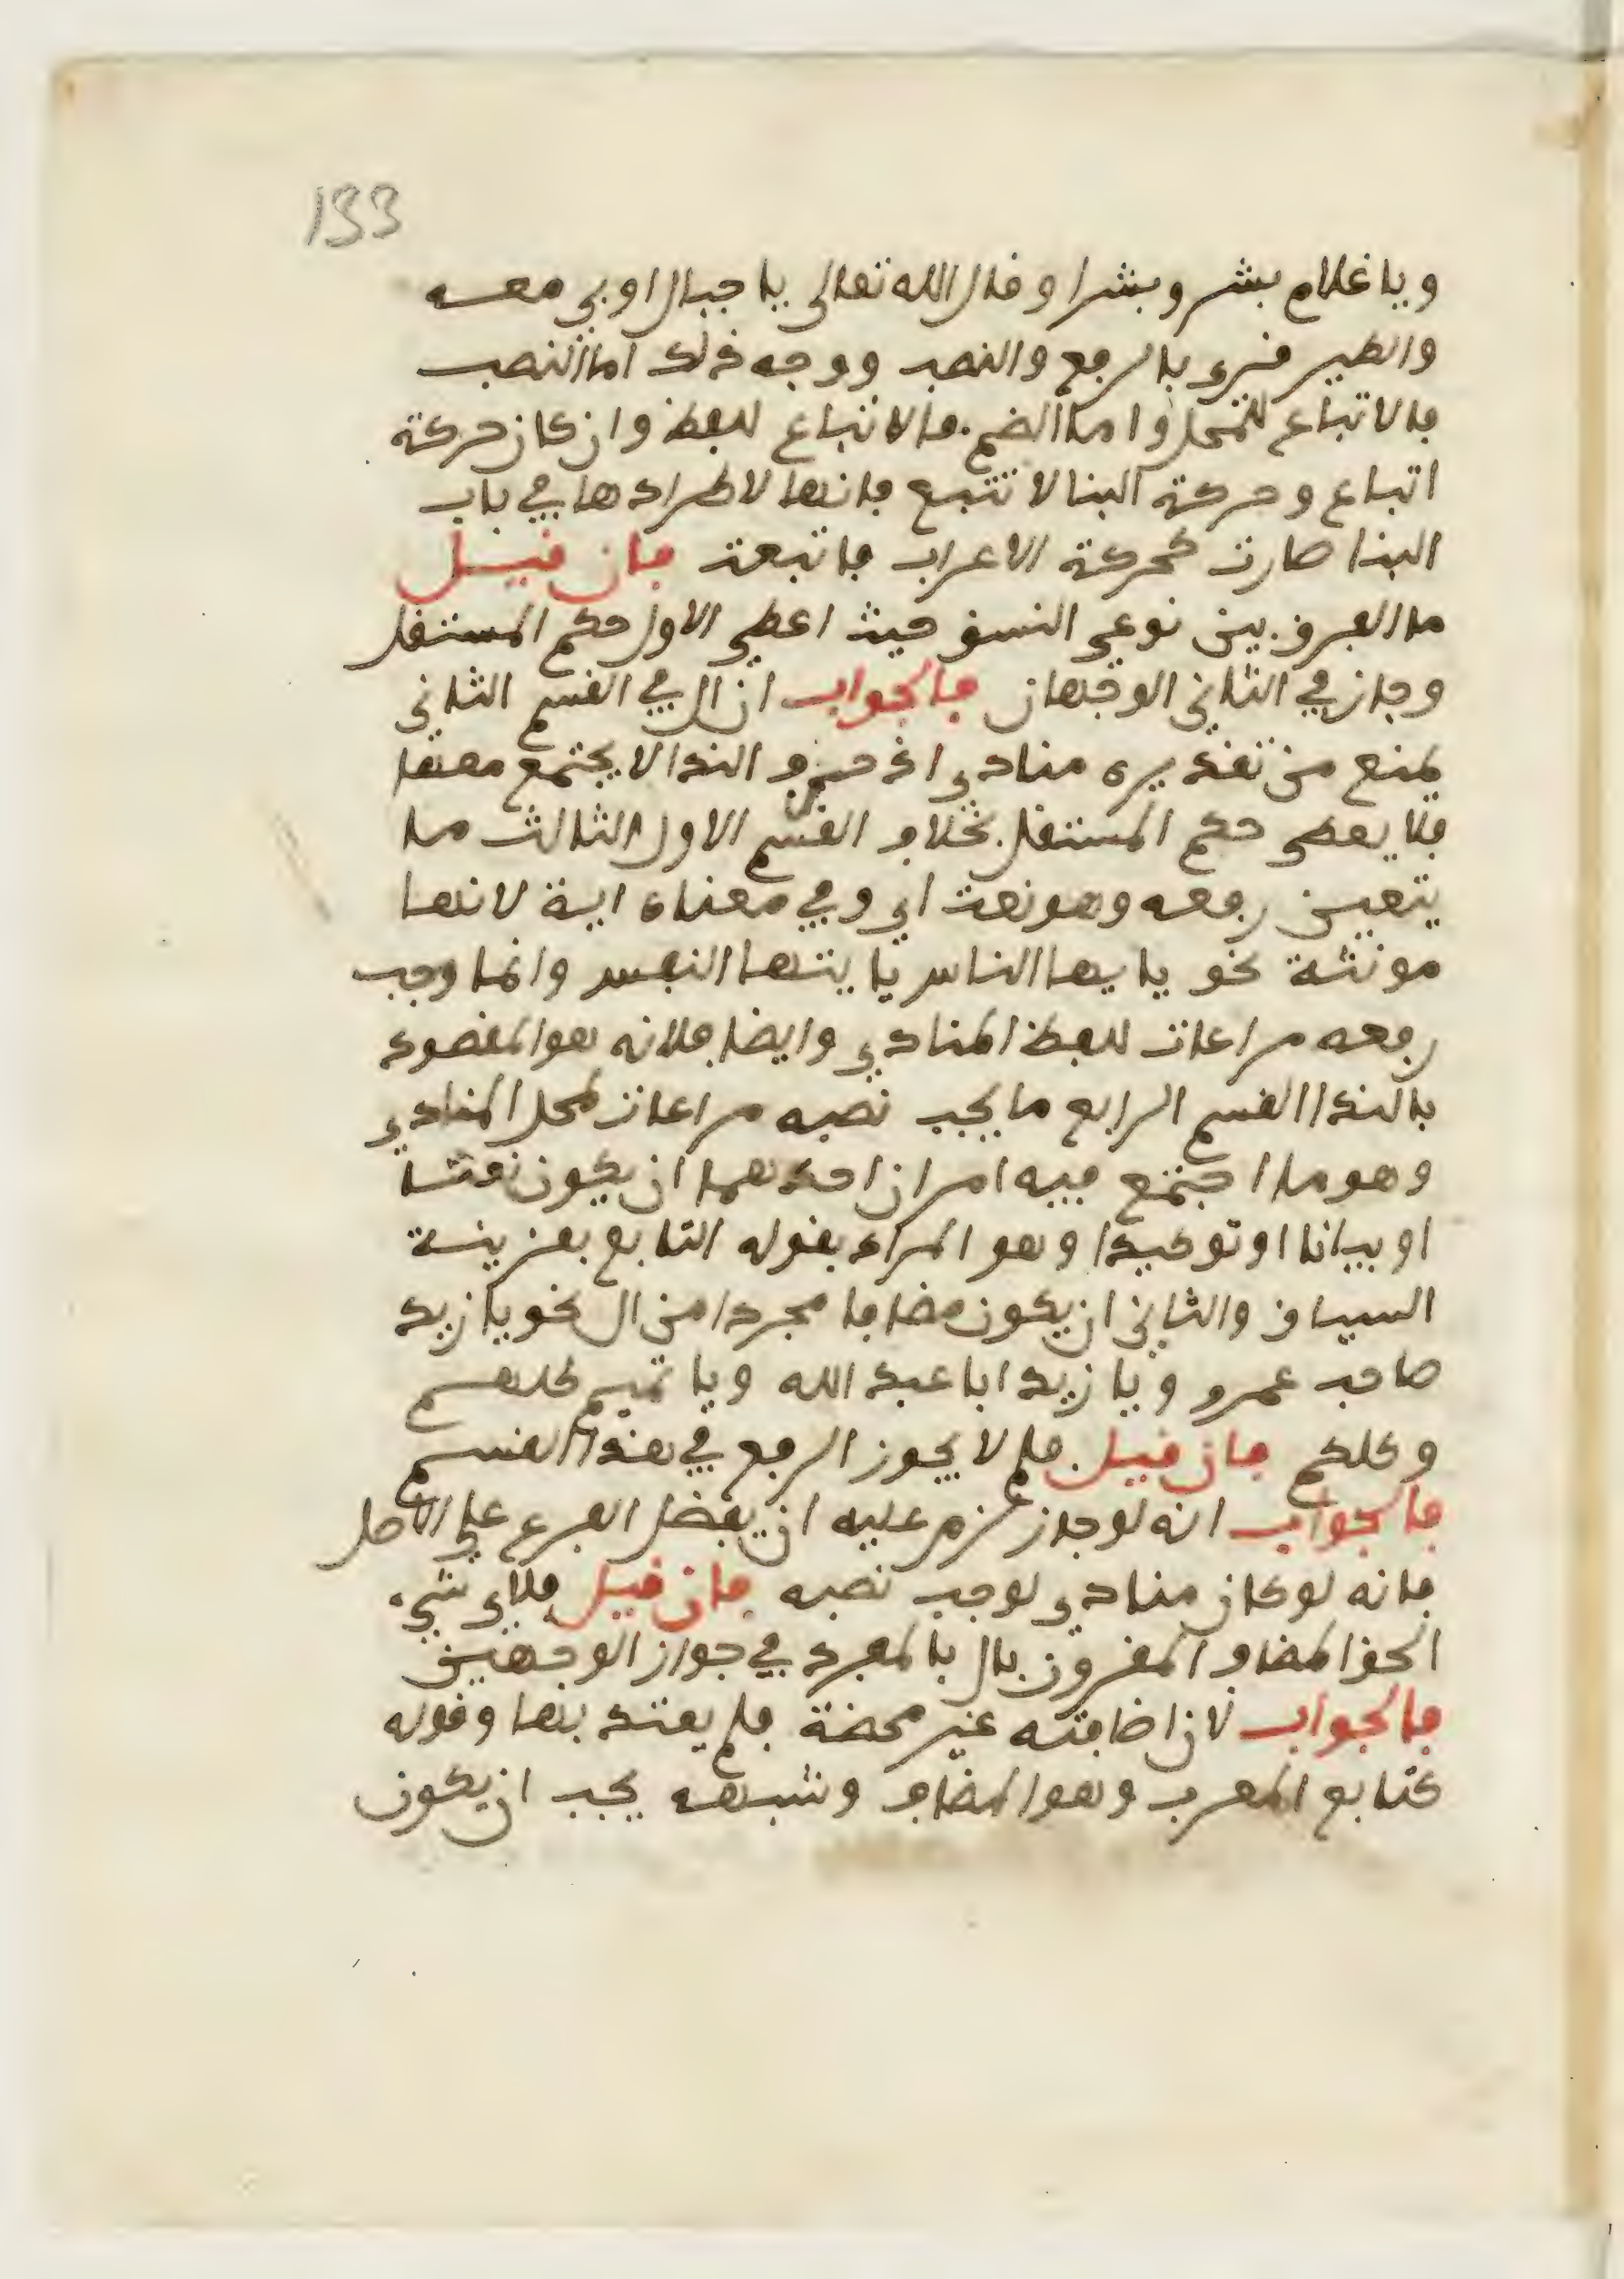 133
ويا غلام بشر وبشرا وقال الله تعالى يا جبال اوبي معه
والطير قرئ بالرفع والنصب ووجه ذلك اما النصب
فالاتباع للمحل واما الضم فالاتباع للفظ وان كان حركة
اتباع وحركة البنا لا تتبع فانها لاطرادها في باب
الندا صارت كحركة الاعراب فاتبعت فان قيل
ما الفرق بين نوعي النسق حيث اعطي الاول حكم المستقل
وجاز في الثاني الوجهان فالجواب ان ال في القسم الثاني
يمنع من تقديره منادى اذ حرف الندا لا يجتمع معها
فلا يعطى حكم المستقل بخلاف القسم الاول الثالث ما
يتعين رفعه وهو نعت اي وفي معناه اية لانها
مونثة نحو يا يها الناس يا يتها النفس وانما وجب
رفعه مراعات للفظ المنادى وايضا فلانه هو المقصود
بالندا القسم الرابع ما يجب نصبه مراعات لمحل المنادى
وهو ما اجتمع فيه امران احدهما ان يكون نعتا
او بيانا او توكيدا وهو المراد بقوله التابع بقرينة
السياق والثاني ان يكون مضافا مجردا من ال نحو يا زيد
صاحب عمرو ويا زيد ابا عبد الله ويا تميم كلهم
وكلكم فان قيل فلم لا يجوز الرفع في هذا القسم
فالجواب انه لو جاز لزم عليه ان يفضل الفرع على الاصل
فانه لو كان منادى لوجب نصبه فان قيل فلاي شيء
الحق المضاف المقرون بال بالمفرد في جواز الوجهين
فالجواب لان اضافته غير محضة فلم يعتد بها وقوله
كتابع المعرب وهو المضاف وشبهه يجب ان يكون